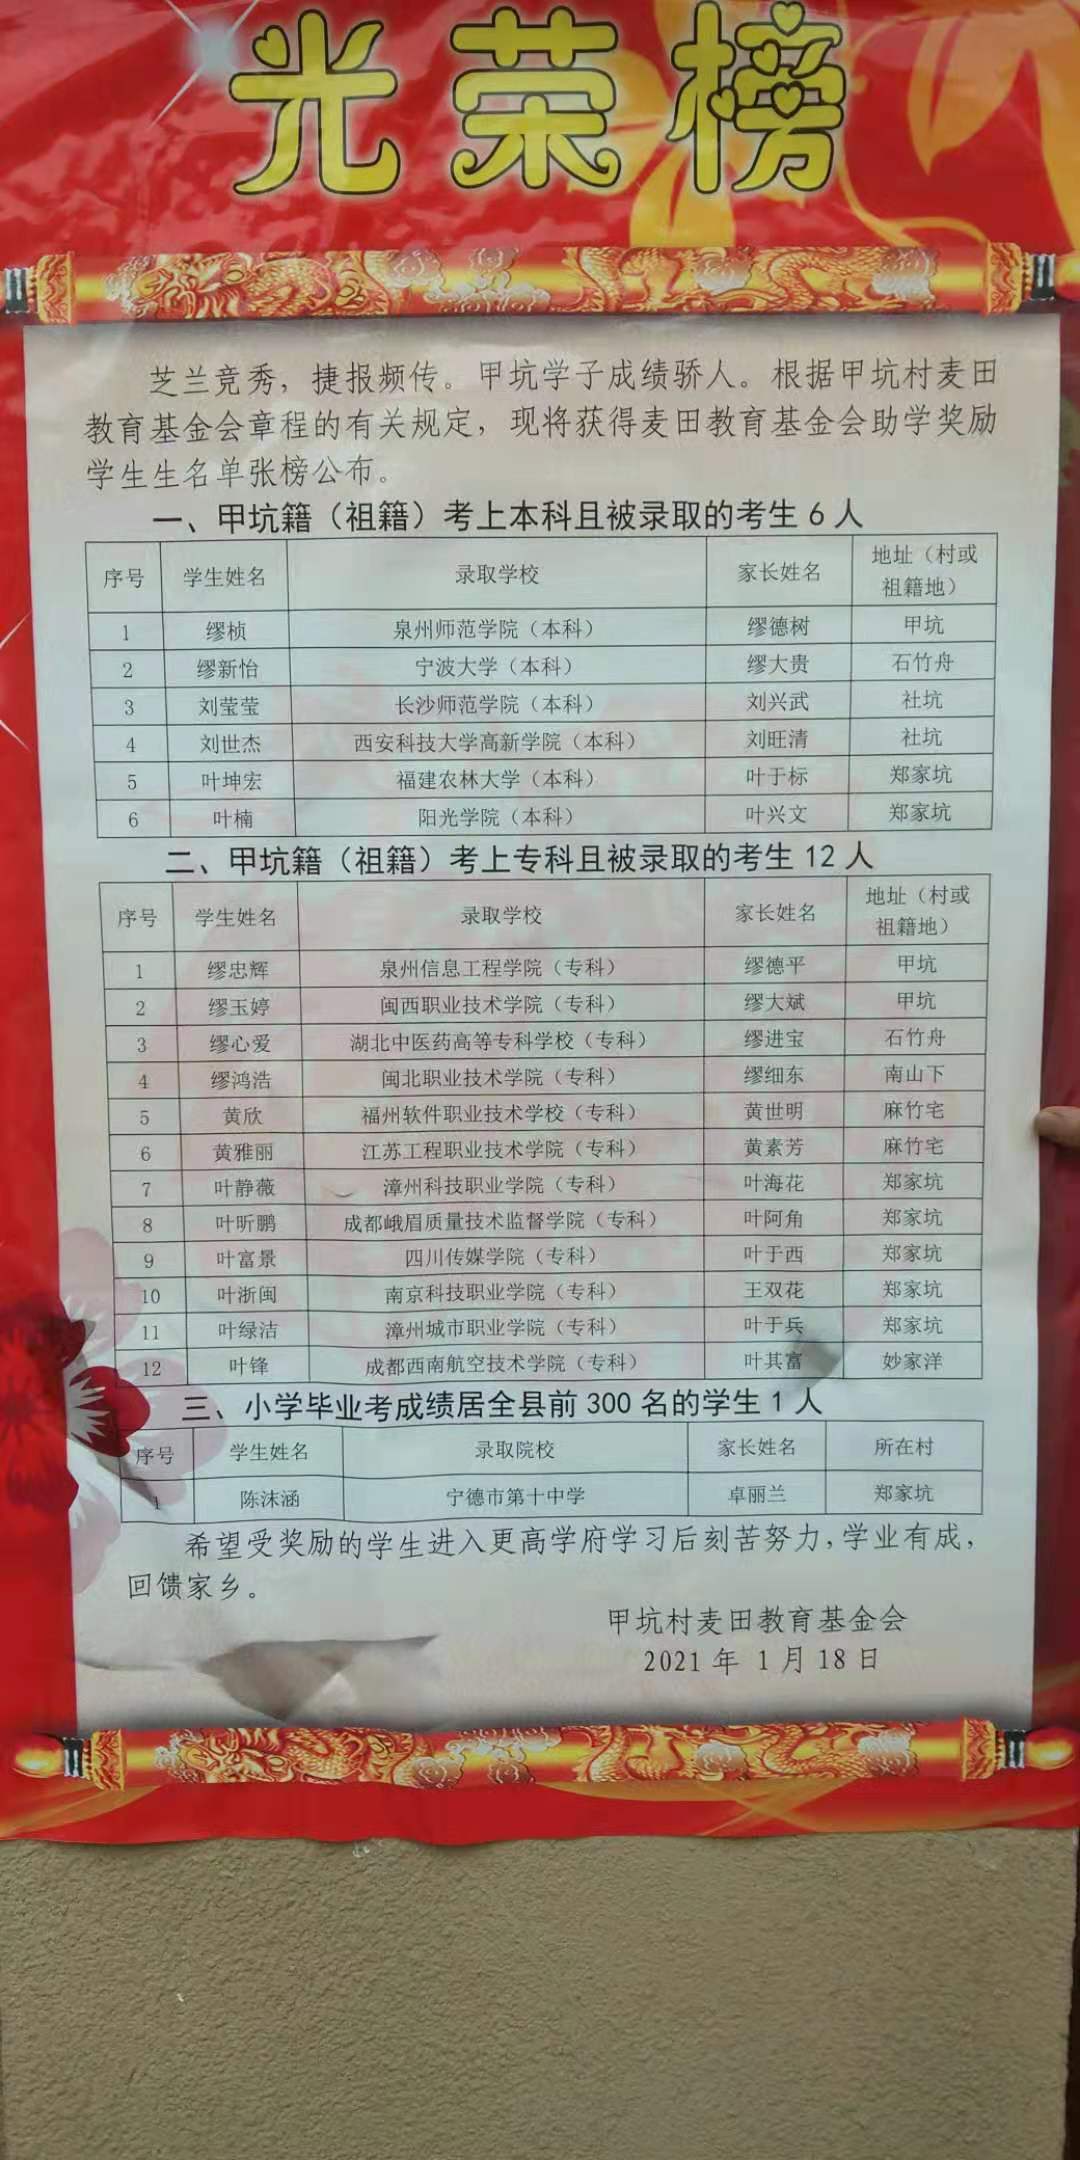 光荣榜
芝兰竞秀，捷报频传。甲坑学子成绩骄人。根据甲坑村麦田
教育基金会章程的有关规定，现将获得麦田教育基金会助学奖励
学生生名单张榜公布。
一、甲坑籍（祖籍）考上本科且被录取的考生6人
序号 学生姓名 录取学校 家长姓名 地址（村或祖籍地）
1 缪桢 泉州师范学院（本科） 缪德树 甲坑
2 缪新怡 宁波大学（本科） 缪大贵 石竹舟
3 刘莹莹 长沙师范学院（本科） 刘兴武 社坑
4 刘世杰 西安科技大学高新学院（本科） 刘旺清 社坑
5 叶坤宏 福建农林大学（本科） 叶于标 郑家坑
6 叶楠 阳光学院（本科） 叶兴文 郑家坑
二、甲坑籍（祖籍）考上专科且被录取的考生12人
序号 学生姓名 录取学校 家长姓名 地址（村或祖籍地）
1 缪忠辉 泉州信息工程学院（专科） 缪德平 甲坑
2 缪玉婷 闽西职业技术学院（专科） 缪大斌 甲坑
3 缪心爱 湖北中医药高等专科学校（专科） 缪进宝 石竹舟
4 缪鸿浩 闽北职业技术学院（专科） 缪细东 南山下
5 黄欣 福州软件职业技术学校（专科） 黄世明 麻竹宅
6 黄雅丽 江苏工程职业技术学院（专科） 黄素芳 麻竹宅
7 叶静薇 漳州科技职业学院（专科） 叶海花 郑家坑
8 叶昕鹏 成都峨眉质量技术监督学院（专科） 叶阿角 郑家坑
9 叶富景 四川传媒学院（专科） 叶于西 郑家坑
10 叶浙闽 南京科技职业学院（专科） 王双花 郑家坑
11 叶绿洁 漳州城市职业学院（专科） 叶于兵 郑家坑
12 叶锋 成都西南航空技术学院（专科） 叶其富 妙家洋
三、小学毕业考成绩居全县前300名的学生1人
序号 学生姓名 录取院校 家长姓名 所在村
1 陈沫涵 宁德市第十中学 卓丽兰 郑家坑
希望受奖励的学生进入更高学府学习后刻苦努力，学业有成，
回馈家乡。
甲坑村麦田教育基金会
2021年1月18日